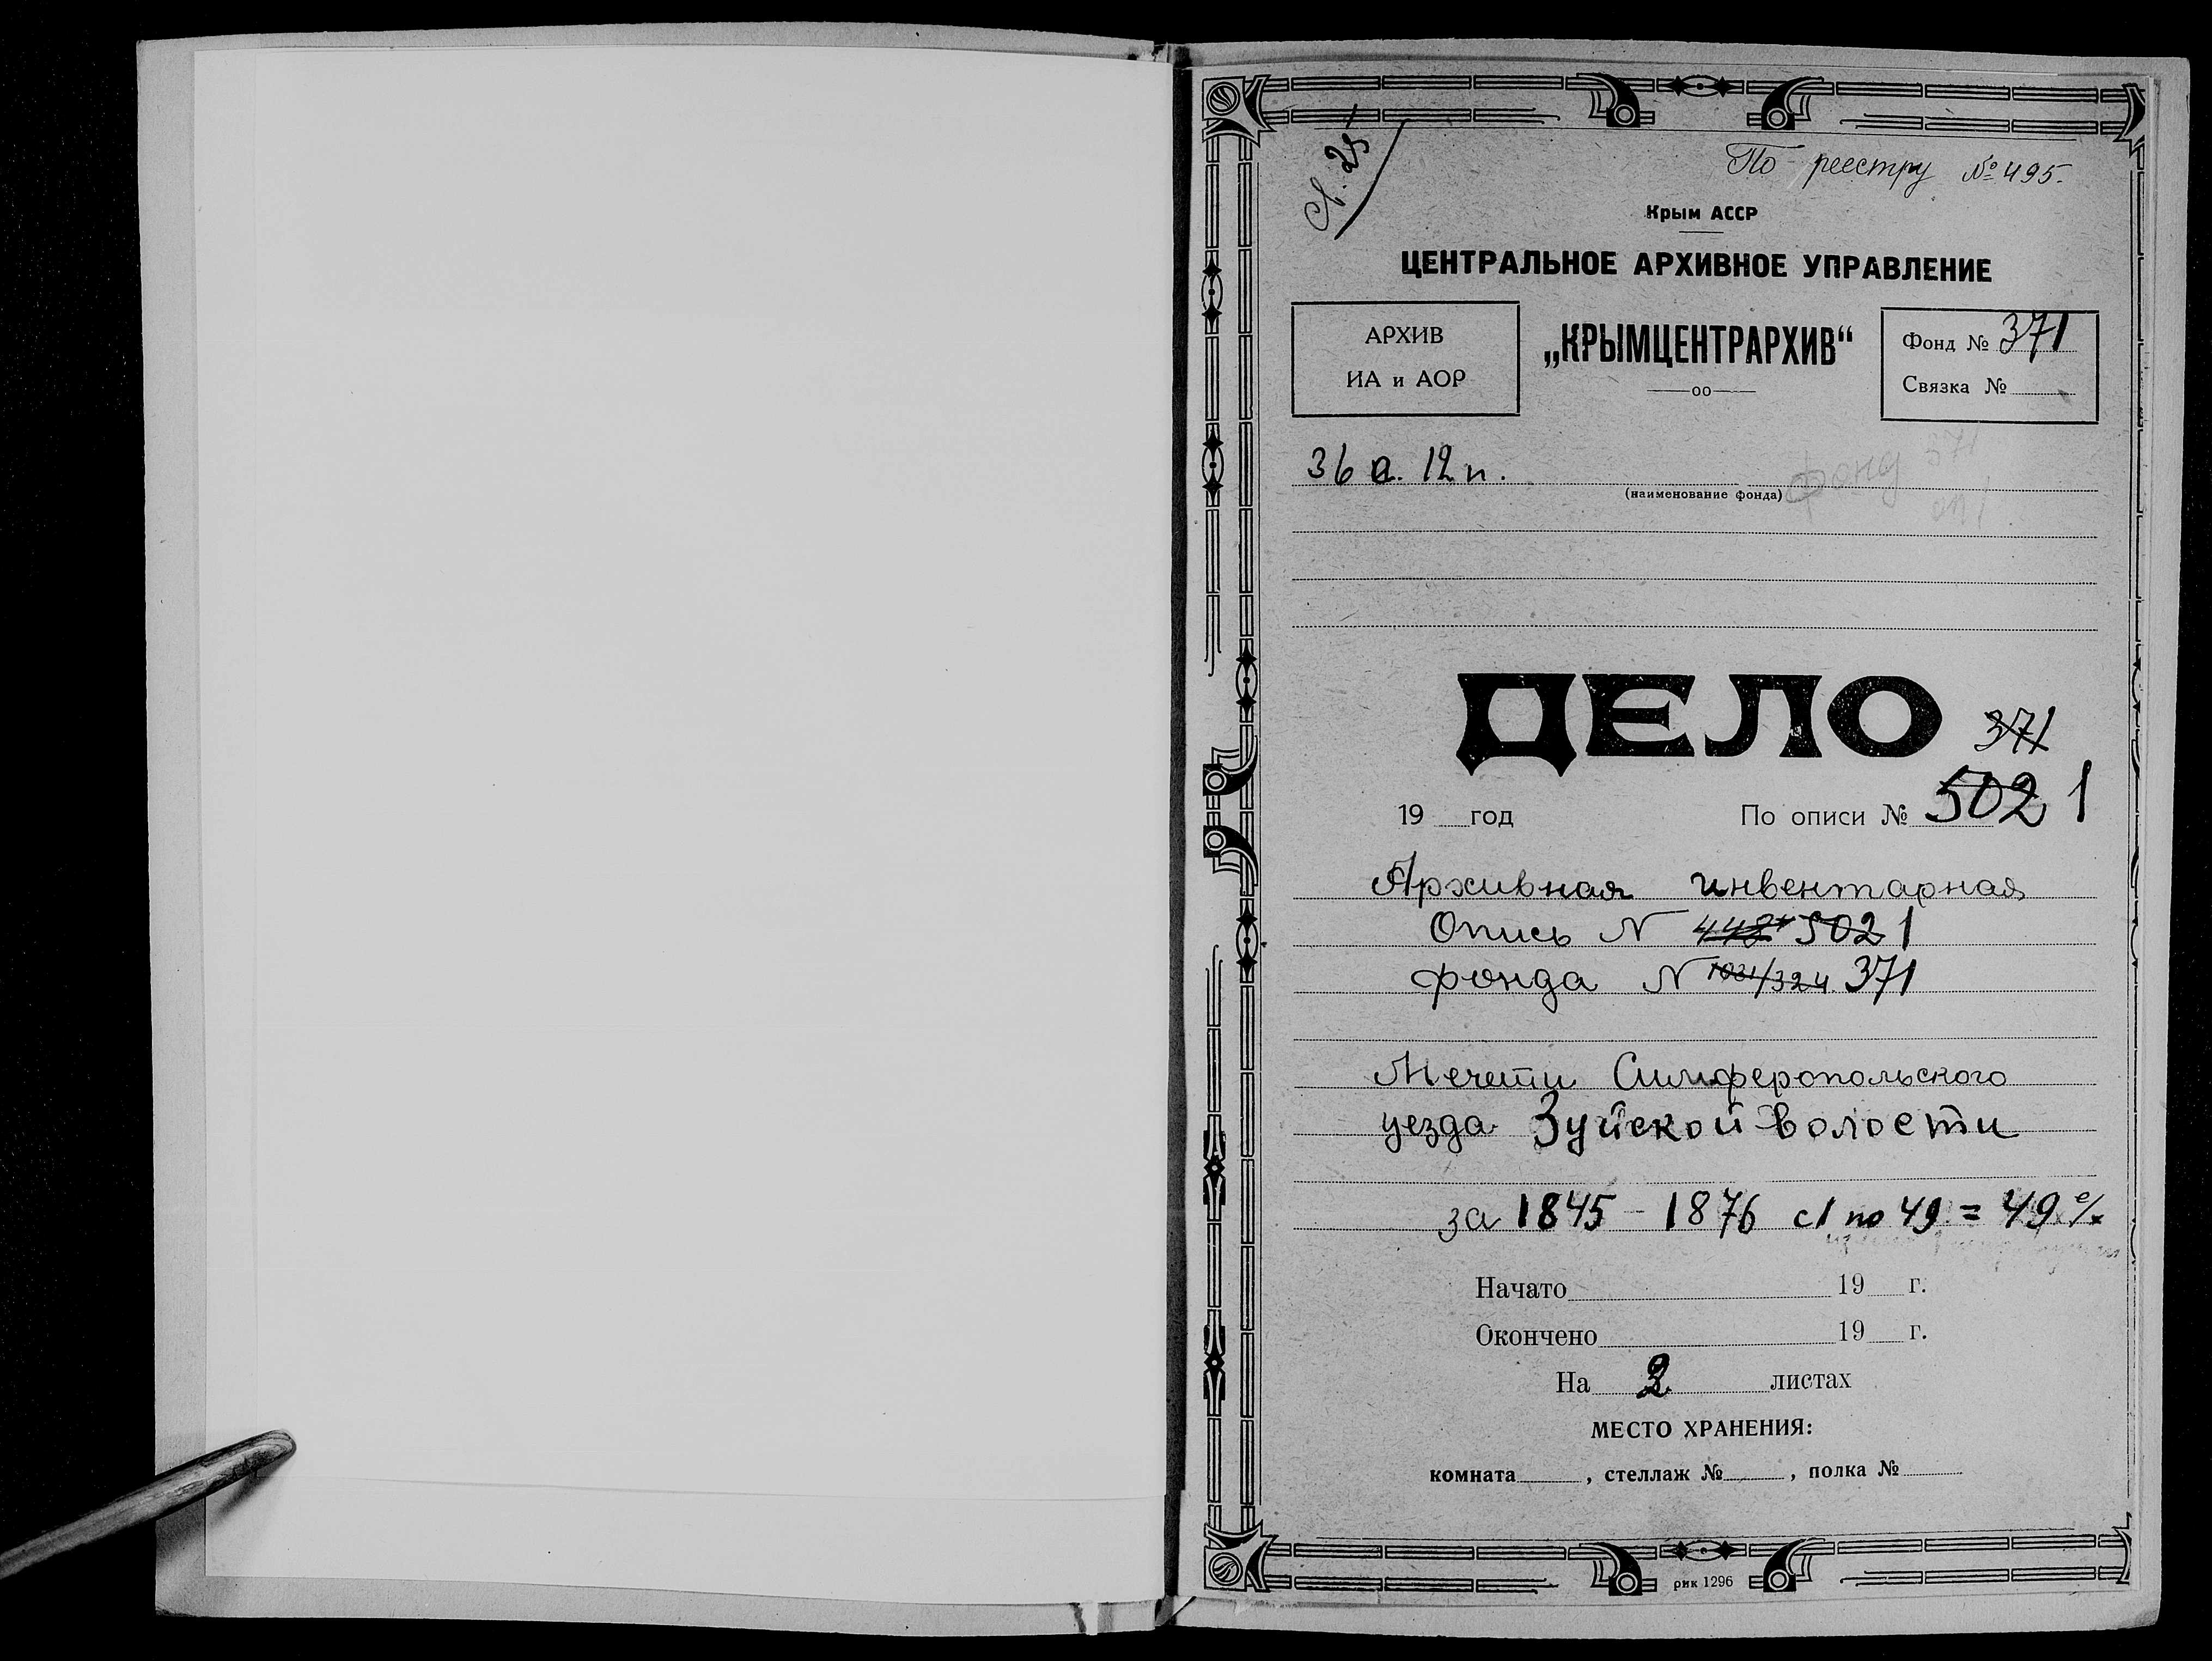 Св. 25
По реестру № 495.
Крым АССР
ЦЕНТРАЛЬНОЕ АРХИВНОЕ УПРАВЛЕНИЕ
АРХИВ
ИА и АОР
„КРЫМЦЕНТРАРХИВ“
Фонд № 371
Связка №
36 а. 12 п.
(наименование фонда)
фонд 371
оп 1
ДЕЛО
371
19 год
По описи № 502 1
Архивная инвентарная
Опись N 448 502 1
фонда N /324 371
Мечети Симферопольского
уезда Зуйской волости
за 1845 - 1876 с 1 по 49 = 49 е/х
Начато 19 г.
Окончено 19 г.
На 2 листах
МЕСТО ХРАНЕНИЯ:
комната , стеллаж № , полка №
рик 1296